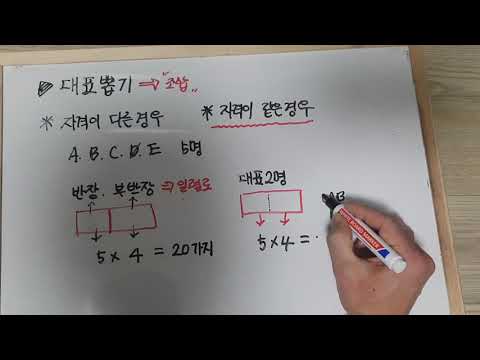 대표뽑기 ⇒ "조합"
* 자격이 다른경우
* 자격이 같은경우
A. B. C. D. E 5명
반장. 부반장 ⇒ 일렬로
대표2명
5 × 4 = 20가지
5 × 4 =